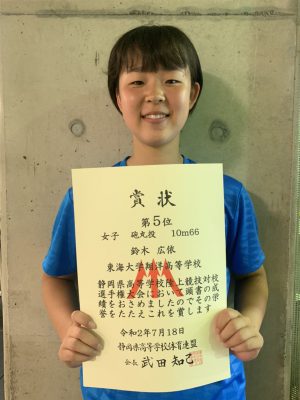 賞状
第5位
女子 砲丸投 10m66
鈴木 広依
東海大学翔洋高等学校
静岡県高等学校陸上競技対校
選手権大会において頭書の成
績をおさめましたのでその栄
誉をたたえこれを賞します
令和2年7月18日
静岡県高等学校体育連盟
会長 武田知己